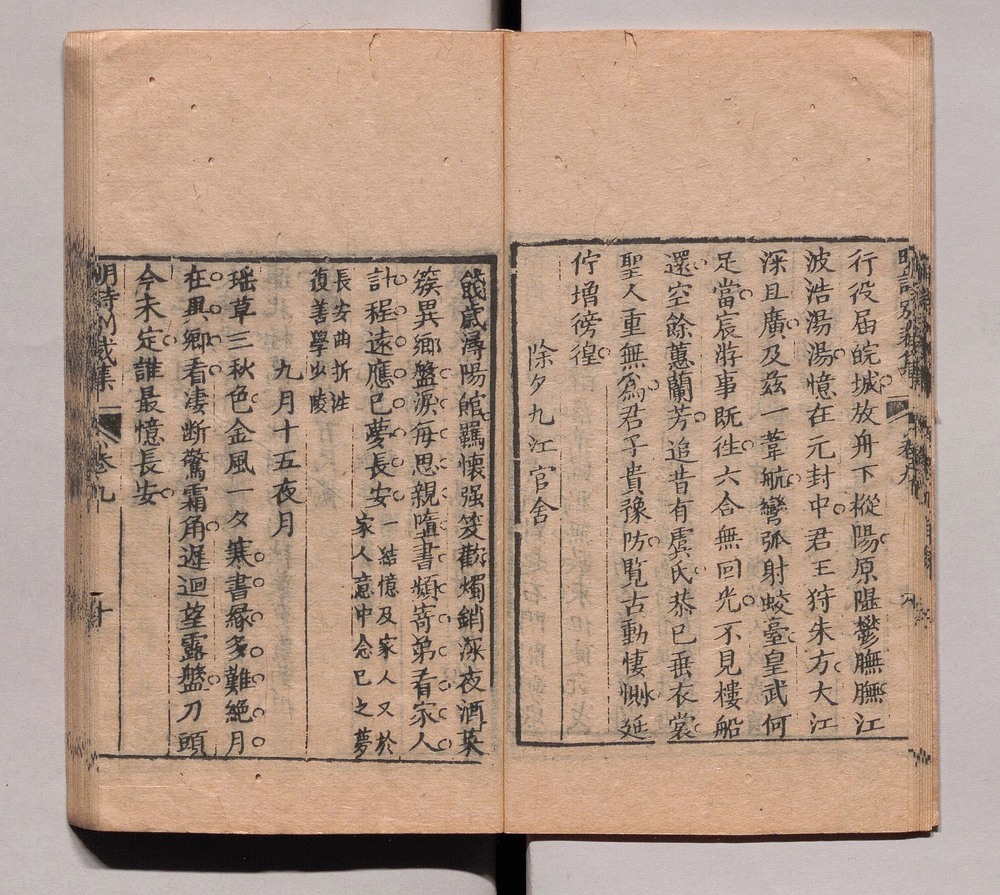 行役届皖城放舟下樅陽原隰鬱膴膴江
波浩湯湯憶在元封中君王狩朱方大江
深且廣及兹一葦航彎弧射蛟臺皇武何
足當宸游事既往六合無回光不見樓船
還空餘蕙蘭芳追昔有虞氏恭已垂衣裳
聖人重無爲君子貴豫防覧古動悽惻延
佇增徬徨
除夕九江官舍
餞歲潯陽館羈懷强笑歡燭銷深夜酒菜
簇異鄉盤淚每思親墮書頻寄弟看家人
計程遠應已夢長安一結憶及家人又於
家人意中念已之夢
長安曲折往
復善學少陵
九月十五夜月
瑶草三秋色金風一夕寒書緣多難絶月
在異鄉看凄断驚霜角遲迴望露盤刀頭
今未定誰最憶長安
卷九
十